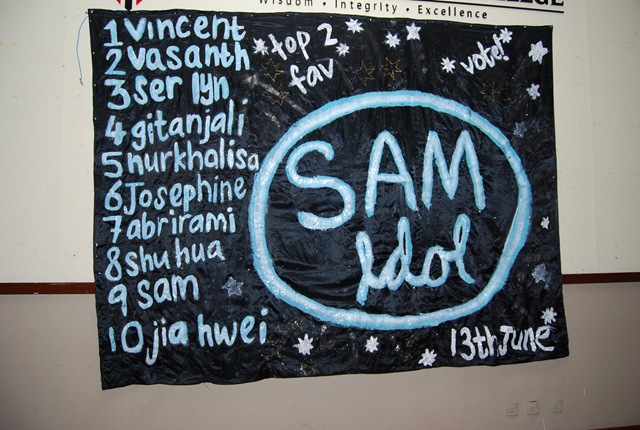 COLLEGE
Wisdom • Integrity • Excellence
1 vincent
2 vasanth
3 ser lyn
4 gitanjali
5 nurkhalisa
6 Josephine
7 abrirami
8 shu hua
9 sam
10 jia hwei
top 2
fav
vote!
SAM
Idol
13th June